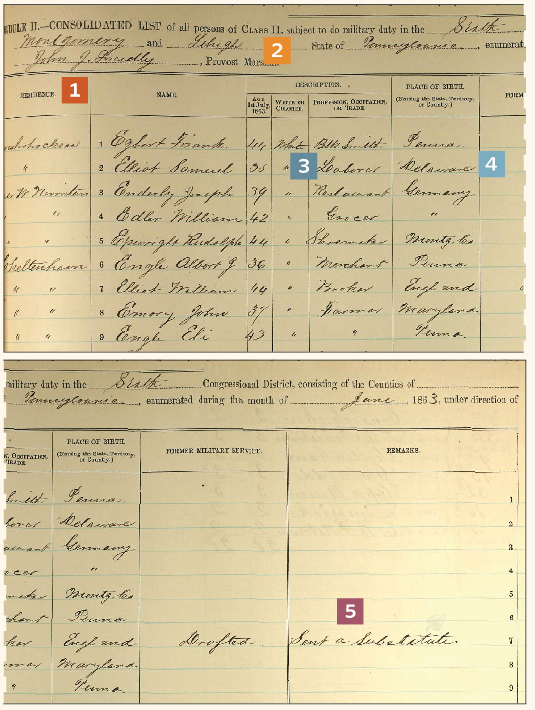 DULE II.—CONSOLIDATED LIST of all persons of CLASS II, subject to do military duty in the Sixth
Montgomery and Lehigh 2 State of Pennsylvania, enumerat
John J. Freedly, Provost Marshal
1 DESCRIPTION. PLACE OF BIRTH.
RESIDENCE. NAME. AGE 1st July, 1863. WHITE OR COLORED. PROFESSION, OCCUPATION, OR TRADE. (Naming the State, Territory, or Country.) FORM
1 Egbert Frank 44 White Blk Smith Penna
2 Elliot Samuel 35 " 3 Laborer Delaware 4
3 Enderly Joseph 39 " Restaurant Germany
" " 4 Edler William 42 " Grocer "
" " 5 Rudolph 44 " Shoemaker Montg. Co
Cheltenham 6 Engle Albert J 36 " Merchant Penna
" " 7 Elliot William 44 " England
" " 8 Emory John 37 " Farmer Maryland
" " 9 Engle Eli 43 " " Penna
military duty in the Sixth Congressional District, consisting of the Counties of
Pennsylvania, enumerated during the month of June, 1863, under direction of
PLACE OF BIRTH.
N, OCCUPATION, TRADE. (Naming the State, Territory, or Country.) FORMER MILITARY SERVICE. REMARKS.
Smith Penna 1
borer Delaware 2
aurant Germany 3
ocer " 4
maker Montg. Co 5
chant Penna 5 6
ker England Drafted Sent a Substitute. 7
rmer Maryland 8
" Penna 9